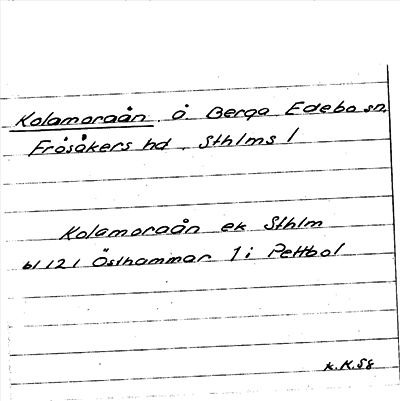 Kolamoraån å Berga Edebo sn,
Frösåkers hd, Sthlms l
Kolamoraån ek Sthlm
bl 121 Östhammar 1 i Pettbol
K.K.Sg